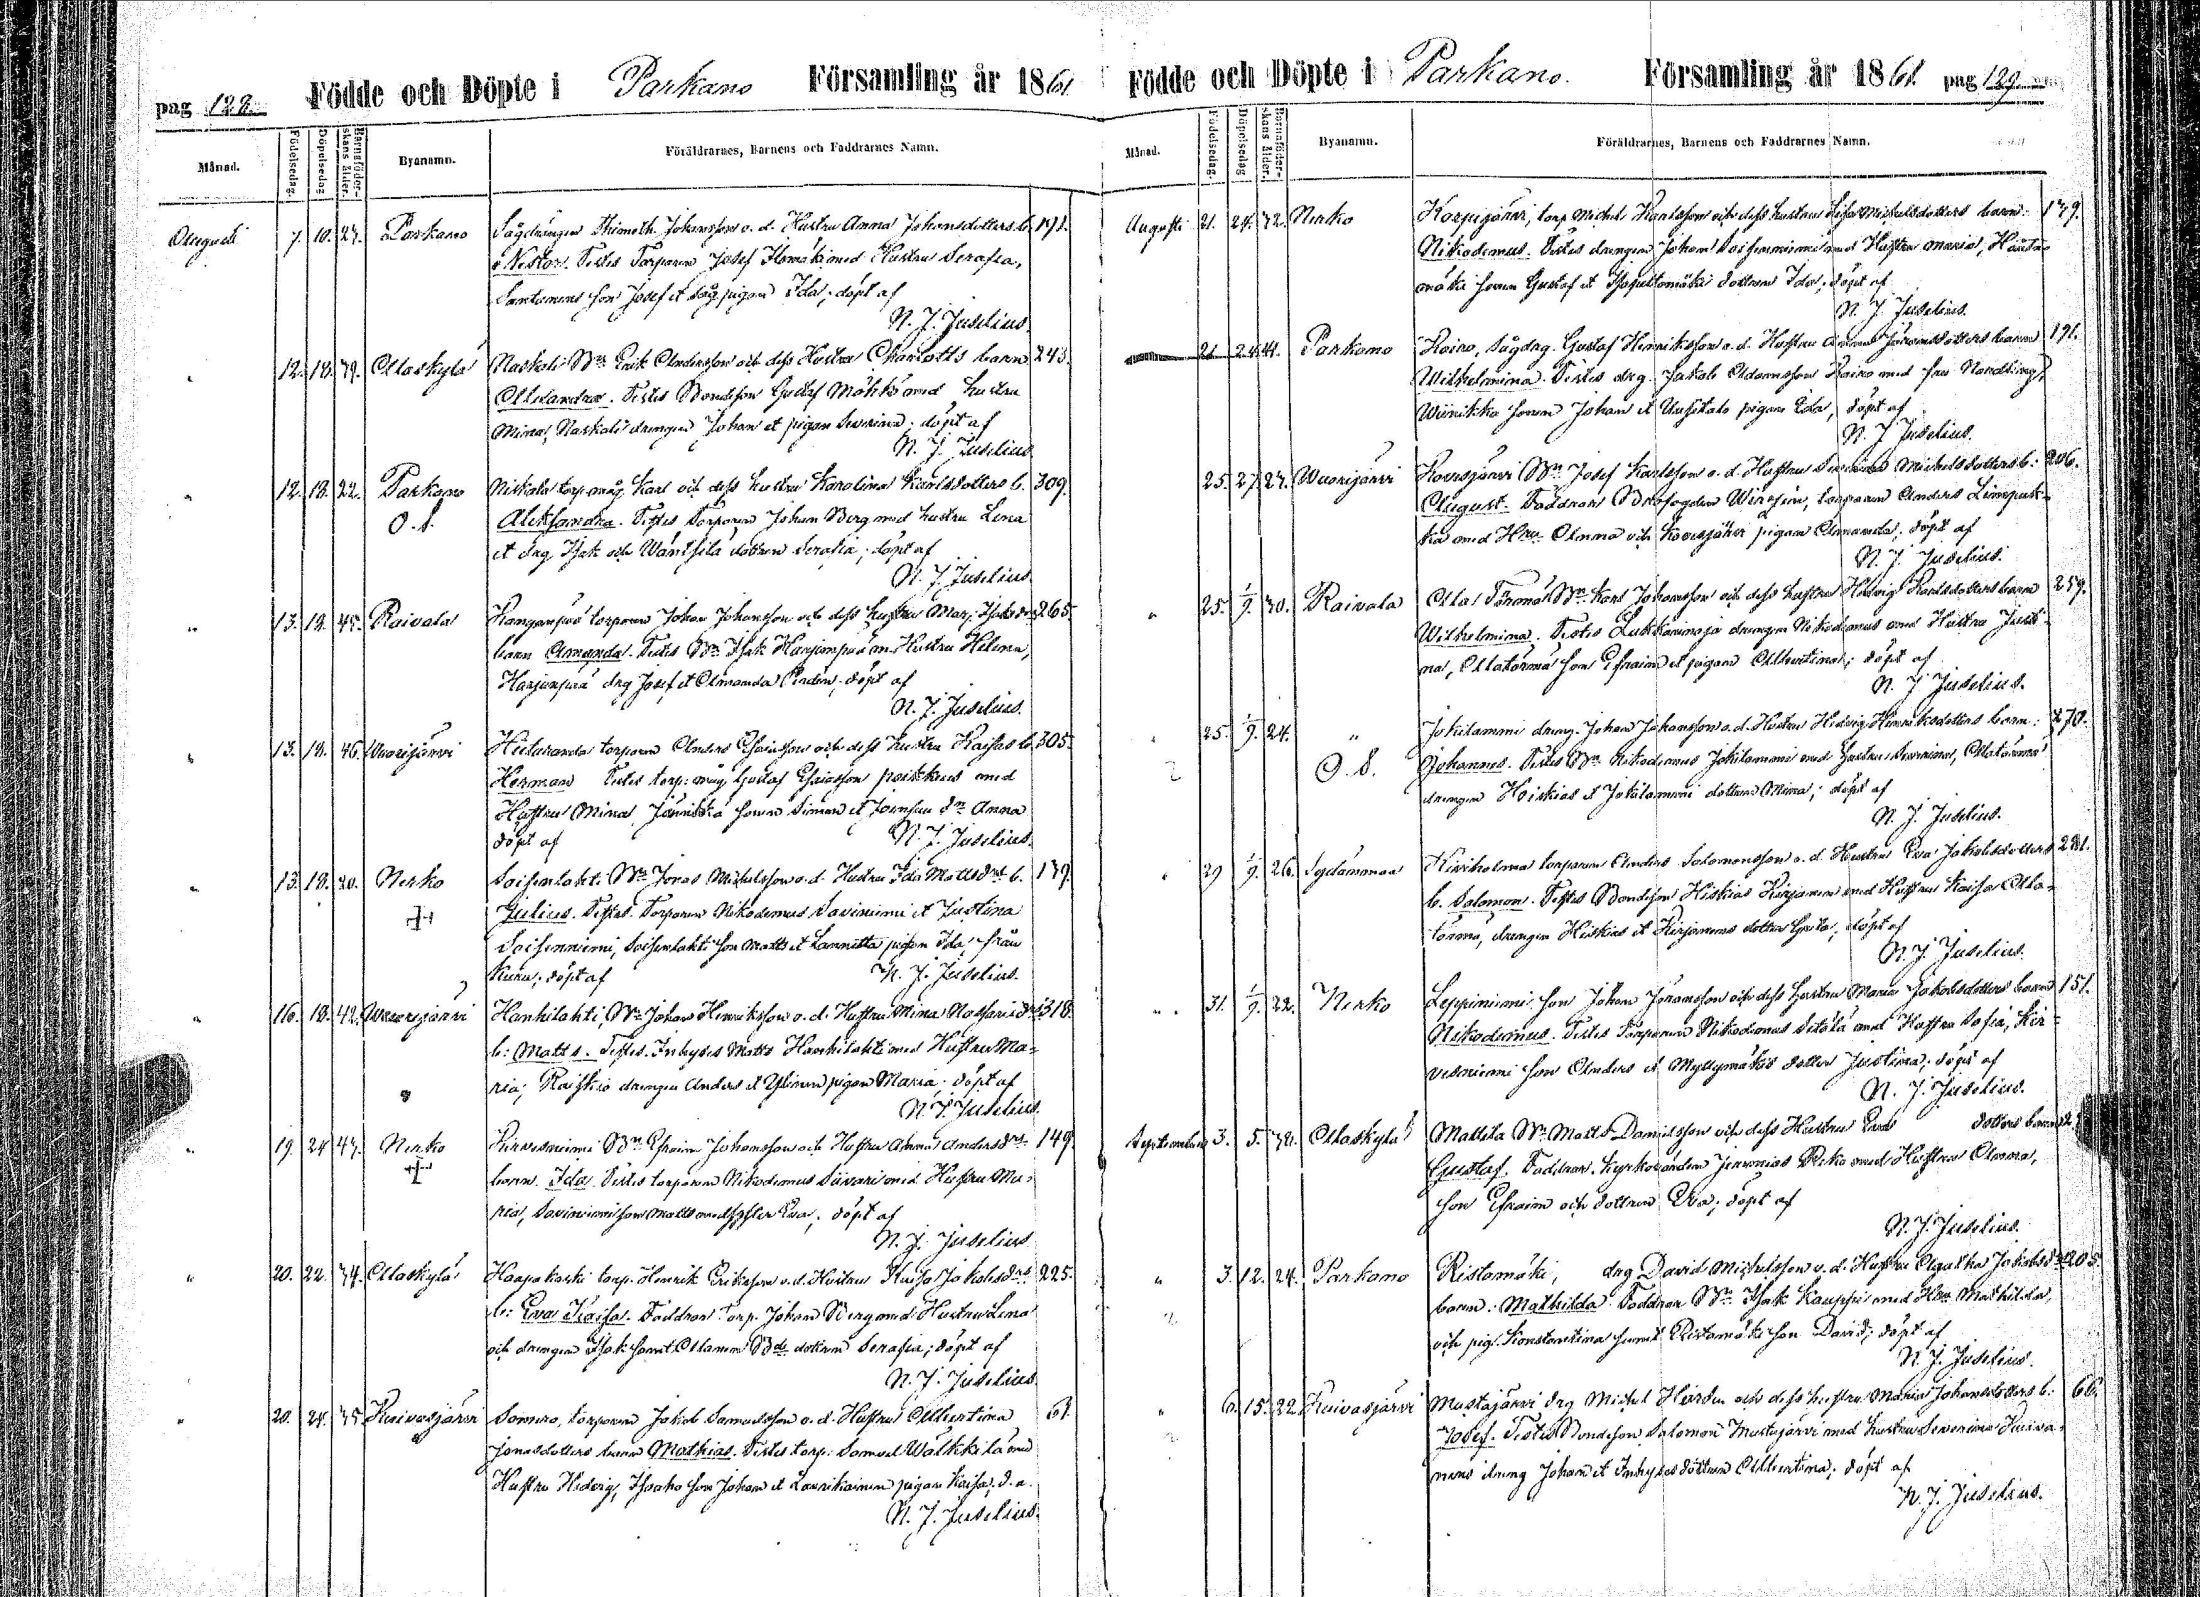 pag 128. Födde och Döpte i Parkano Församling år 1861.
Månad. Födelsedag. Döpelsedag. Barnaföderskans ålder. Byanamn. Föräldrarnes, Barnens och Faddrarnes Namn.
Augusti 7. 10. 27. Parkano Sågdrängen Thimoth. Johansson o. d. Hustru Anna Johansdotters b. 191.
Nestor. Testes Torparen Josef med Hustru Serafia,
son Josef et pigan Ida; döpt af
N. J. Juselius.
12. 18. 39. Alaskylä Naskali Bn Erik Andersson och dess Hustru Charlotts barn 243.
Alexandra. Testes Bondeson Gustaf med hustru
Mina, Naskali drängen Johan et pigan Severina; döpt af
N. J. Juselius
12. 18. 22. Parkano Niskala torp. måg Karl och dess hustru Karolina Karlsdotters b. 309.
O. S. Aleksandra. Testes Torparen Johan Berg med hustru Lena
et drg Isak och dottren Serafia; döpt af
N. J. Juselius
13. 18. 45. Raivala torparen Johan Johansson och dess hustru Mar. Isaksdrs 265.
barn Amanda. Testes Bn Isak Harjunpää m. Hustru Helena,
Harjunpää drg Josef et Amanda; döpt af
N. J. Juselius.
13. 18. 46. Vuorijärvi torparen Anders Esaiasson och dess hustru Kaisas b. 305.
Herman Testes torp. måg Gustaf Esaiasson med
Hustru Mina sonen Simon et dr Anna
döpt af N. J. Juselius.
13. 18. 20. Nerko Soisenlahti Bn Jonas Michelsson o. d. Hustru Ida Mattsdrs b. 139.
Julius. Testes. Torparen Nikodemus Saviniemi et Justina
Soiseniemi, Soisenlahti son Matts et pigan Ida från
Kuru; döpt af N. J. Juselius.
16. 18. 42. Vuorijärvi Hanhilahti, Bn Johan Henriksson o. d. Hustru Mina 318.
b: Matts. Testes. Inhyses Matts Hanhilahti med Hustru Ma-
ria; drängen Anders et Ylinen pigan Maria; döpt af
N. J. Juselius.
19. 24 43. Nerko Kirvesniemi Bn Efraim Johansson och Hustru Anna Andersdrs 149.
barn. Ida. Testes torparen Nikodemus Sävari med Hustru Ma-
ria, Saviniemi son Matts med syster Eva; döpt af
N. J. Juselius
20. 22. 34. Alaskylä Haapakoski torp. Henrik Eriksson o. d. Hustru Kaisa Jakobsdrs 225.
b: Eva Kaisa. Faddrar torp. Johan Berg med Hustru Lena
och drängen Isak samt Alanen Bds dottren Serafia; döpt af
N. J. Juselius
20. 24. 35. Kuivasjärvi Somero, torparen Jakob Samuelsson o. d. Hustru Albertina 61.
Jonasdotters barn Mathias. Testes torp. Samuel med
Hustru Hedvig, son Johan et pigan Kaisa, d. a.
N. J. Juselius.
Födde och Döpte i Parkano. Församling år 1861. pag 129.
Månad. Födelsedag. Döpelsedag Barnaföderskans ålder. Byanamn. Föräldrarnes, Barnens och Faddrarnes Namn.
Augusti 21. 24. 32. Nerko Korpijärvi, torp. Michel Karlsson och dess hustru Lisa Michelsdotters barn: 179.
Nikodemus. Testes drängen Johan Soiseniemi med Hustru Maria,
sonen Gustaf et dottren Ida; döpt af
N. J. Juselius.
21. 24. 44. Parkano Koino, sågdrg. Gustaf Henriksson o. d. Hustru barn 191.
Wilhelmina. Testes drg. Jakob Adamsson med fru
Winikka sonen Johan et pigan Eda; döpt af
N. J. Juselius.
25. 27. 27. Wuorijärvi Bn Josef Karlsson o. d. Hustru Severina Michelsdotters b: 206.
August. Faddrar torparen Anders
med Hru Anna och pigan Amanda; döpt af
N. J. Juselius.
25. 1/9. 30. Raivala Ala Törmä Bn Karl Johansson och dess hustru Hedvig Karlsdotters barn 259.
Wilhelmina. Testes drängen Nikodemus med Hustru Justi-
na, Alatörmä son Efraim et pigan Albertina; döpt af
N. J. Juselius.
25. 1/9. 24. " Jokilammi dräng. Johan Johansson o. d. Hustru Hedvig Henriksdotters barn: 270.
O. S. Johannes. Testes Bn Nikodemus Jokilammi med Hustru Severina, Alatörmä
drängen Heiskias et Jokilammi dottren Mina; döpt af
N. J. Juselius.
29 1/9. 26. Sydänmaa torparen Anders Salomonsson o. d. Hustru Eva Jakobsdotters 281.
b. Salomon. Testes Bondeson Hiskias med Hustru Kaisa Ala-
törmä, drängen Hiskias et dotter; döpt af
N. J. Juselius.
31. 1/9. 22. Nerko Leppiniemi son Johan Jonasson och dess hustru Maria Jakobsdotters barn 151.
Nikodemus. Testes Torparen Nikodemus med Hustru Sofia, Kir-
vesniemi son Anders et Myllymäkis dotter Justina; döpt af
N. J. Juselius.
September 3. 5. 38. Alaskylä Mattila Bn Matts Danielsson och dess Hustru Eva dotters barn
Gustaf. Faddrar. Kyrkovärden Jeremias med Hustru Anna,
son Efraim och dottren Eva; döpt af
N. J. Juselius.
3. 12. 24. Parkano Ristamäki, drg David Michelsson o. d. Hustru Agatha Jakobsdrs 205.
barn: Mathilda Faddrar Bn Isak Kauppi med Hru Mathilda,
och pig. Konstantina samt Ristamäki son David; döpt af
N. J. Juselius.
6. 15. 22. Kuivasjärvi Mustajärvi drg Michel och dess hustru Maria Johansdotters b: 66.
Josef. Testes Bondeson Salomon Mustajärvi med hustru Severina
dräng Johan et Inhyses dottren Albertina; döpt af
N. J. Juselius.